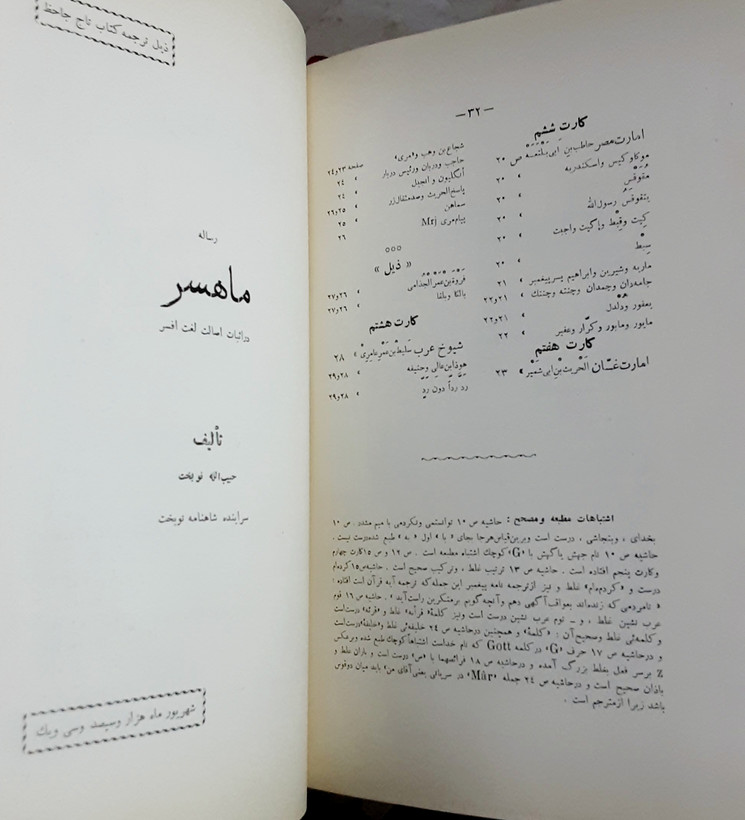 ذیل ترجمه کتاب تاج جاحظ
رساله
ماهسر
در اثبات اصالت لغت افسر
تألیف
حبیب الله نوبخت
سراینده شاهنامه نوبخت
شهریور ماه هزار وسیصد وسی ویك
—۳۲—
کارت ششم
امارت مصر حاطب بن ابی بلتعه ص ۲۰
موکاوکیس واسکندریه » ۲۰
مقوقس » ۲۰
ینقوفس رسول الله » ۲۰
کیت وقبط وإکیت واجبت » ۲۰
سبط » ۲۰
ماریه وشیرین وابراهیم پسرپیغمبر » ۲۱
جامه‌دان وچمدان وچنته وچنتك » ۲۱و۲۲
یعفور ودلدل » ۲۱و۲۲
مایور ومابور وکرّار وعفیر ۲۲
کارت هفتم
امارت غسّان الحریث بن ابی شمیر » ۲۳
شجاع بن وهب و«مری» صفحه ۲۳و۲۴
حاجب ودربان ورئیس دربار » ۲۴
أنگلیون و انجیل » ۲۴
پاسخ الحریث وصدمثقال زر » ۲۵و۲۶
سماهن » ۲۵
پیام مری Mrj ۲۶
○○○
« ذیل »
فروة بن عمر الجذامی » ۲۶و۲۷
بالقا وبلقا » ۲۶و۲۷
کارت هشتم
شیوخ عرب سلیط بن عمر عامری » ۲۸
هوذابن عالی وحنیفه » ۲۸و۲۹
رد رداً دون ردٍّ » ۲۸و۲۹
اشتباهات مطبعه ومصحح : حاشیه ص ۱۰ توانستمی ونکردمی با میم مشدد . ص ۱۰
بخدای ، وبنجاشی ، درست است وبرین‌قیاس هرجا بجای « با » اول « به » طبع شده‌درست نیست.
حاشیه ص ۱۰ نام جهش یاگهش با «G» کوچك اشتباه مطبعه است . ص ۱۲ و ص ۱۵ کارت چهارم
وکارت پنجم افتاده است . حاشیه ص ۱۳ ترتیب غلط ، وترکیب صحیح است . حاشیه‌ص۱۵ کرده‌ام
درست و «کردم‌ام» غلط و نیز ازترجمه نامه پیغمبر این جمله‌که ترجمه آیه قرآن است افتاده :
« تامردمی که زنده‌اند بعواقب آگهی دهم وآنچه گویم برمنکرین راست‌آید» . حاشیه ص ۱۶ قوم
عرب نشین غلط ، و ــ توم عرب نشین درست است ونیز کلمهٔ قرآنه» غلط و «قرئه» درست‌است
و کلمه‌ئی غلط وصحیح آن : «کلمهٔ» و همچنین درحاشیه ص ۲۴ خلیفه‌ئی غلط و«خلیفهٔ»درست‌است
و درحاشیه ص ۱۷ حرف «G» درکلمه Gott که نام خداست اشتباهاً کوچك طبع شده وبرعکس
Z برسر فعل بغلط بزرگ آمده و درحاشیه ص ۱۸ فرائصهما با «ص» درست است و باران غلط و
باذان صحیح است و درحاشیه ص ۲۴ جمله «Mâr» در سریانی یعنی آقای من» باید میان دوقوس
باشد زیرا ازمترجم است .